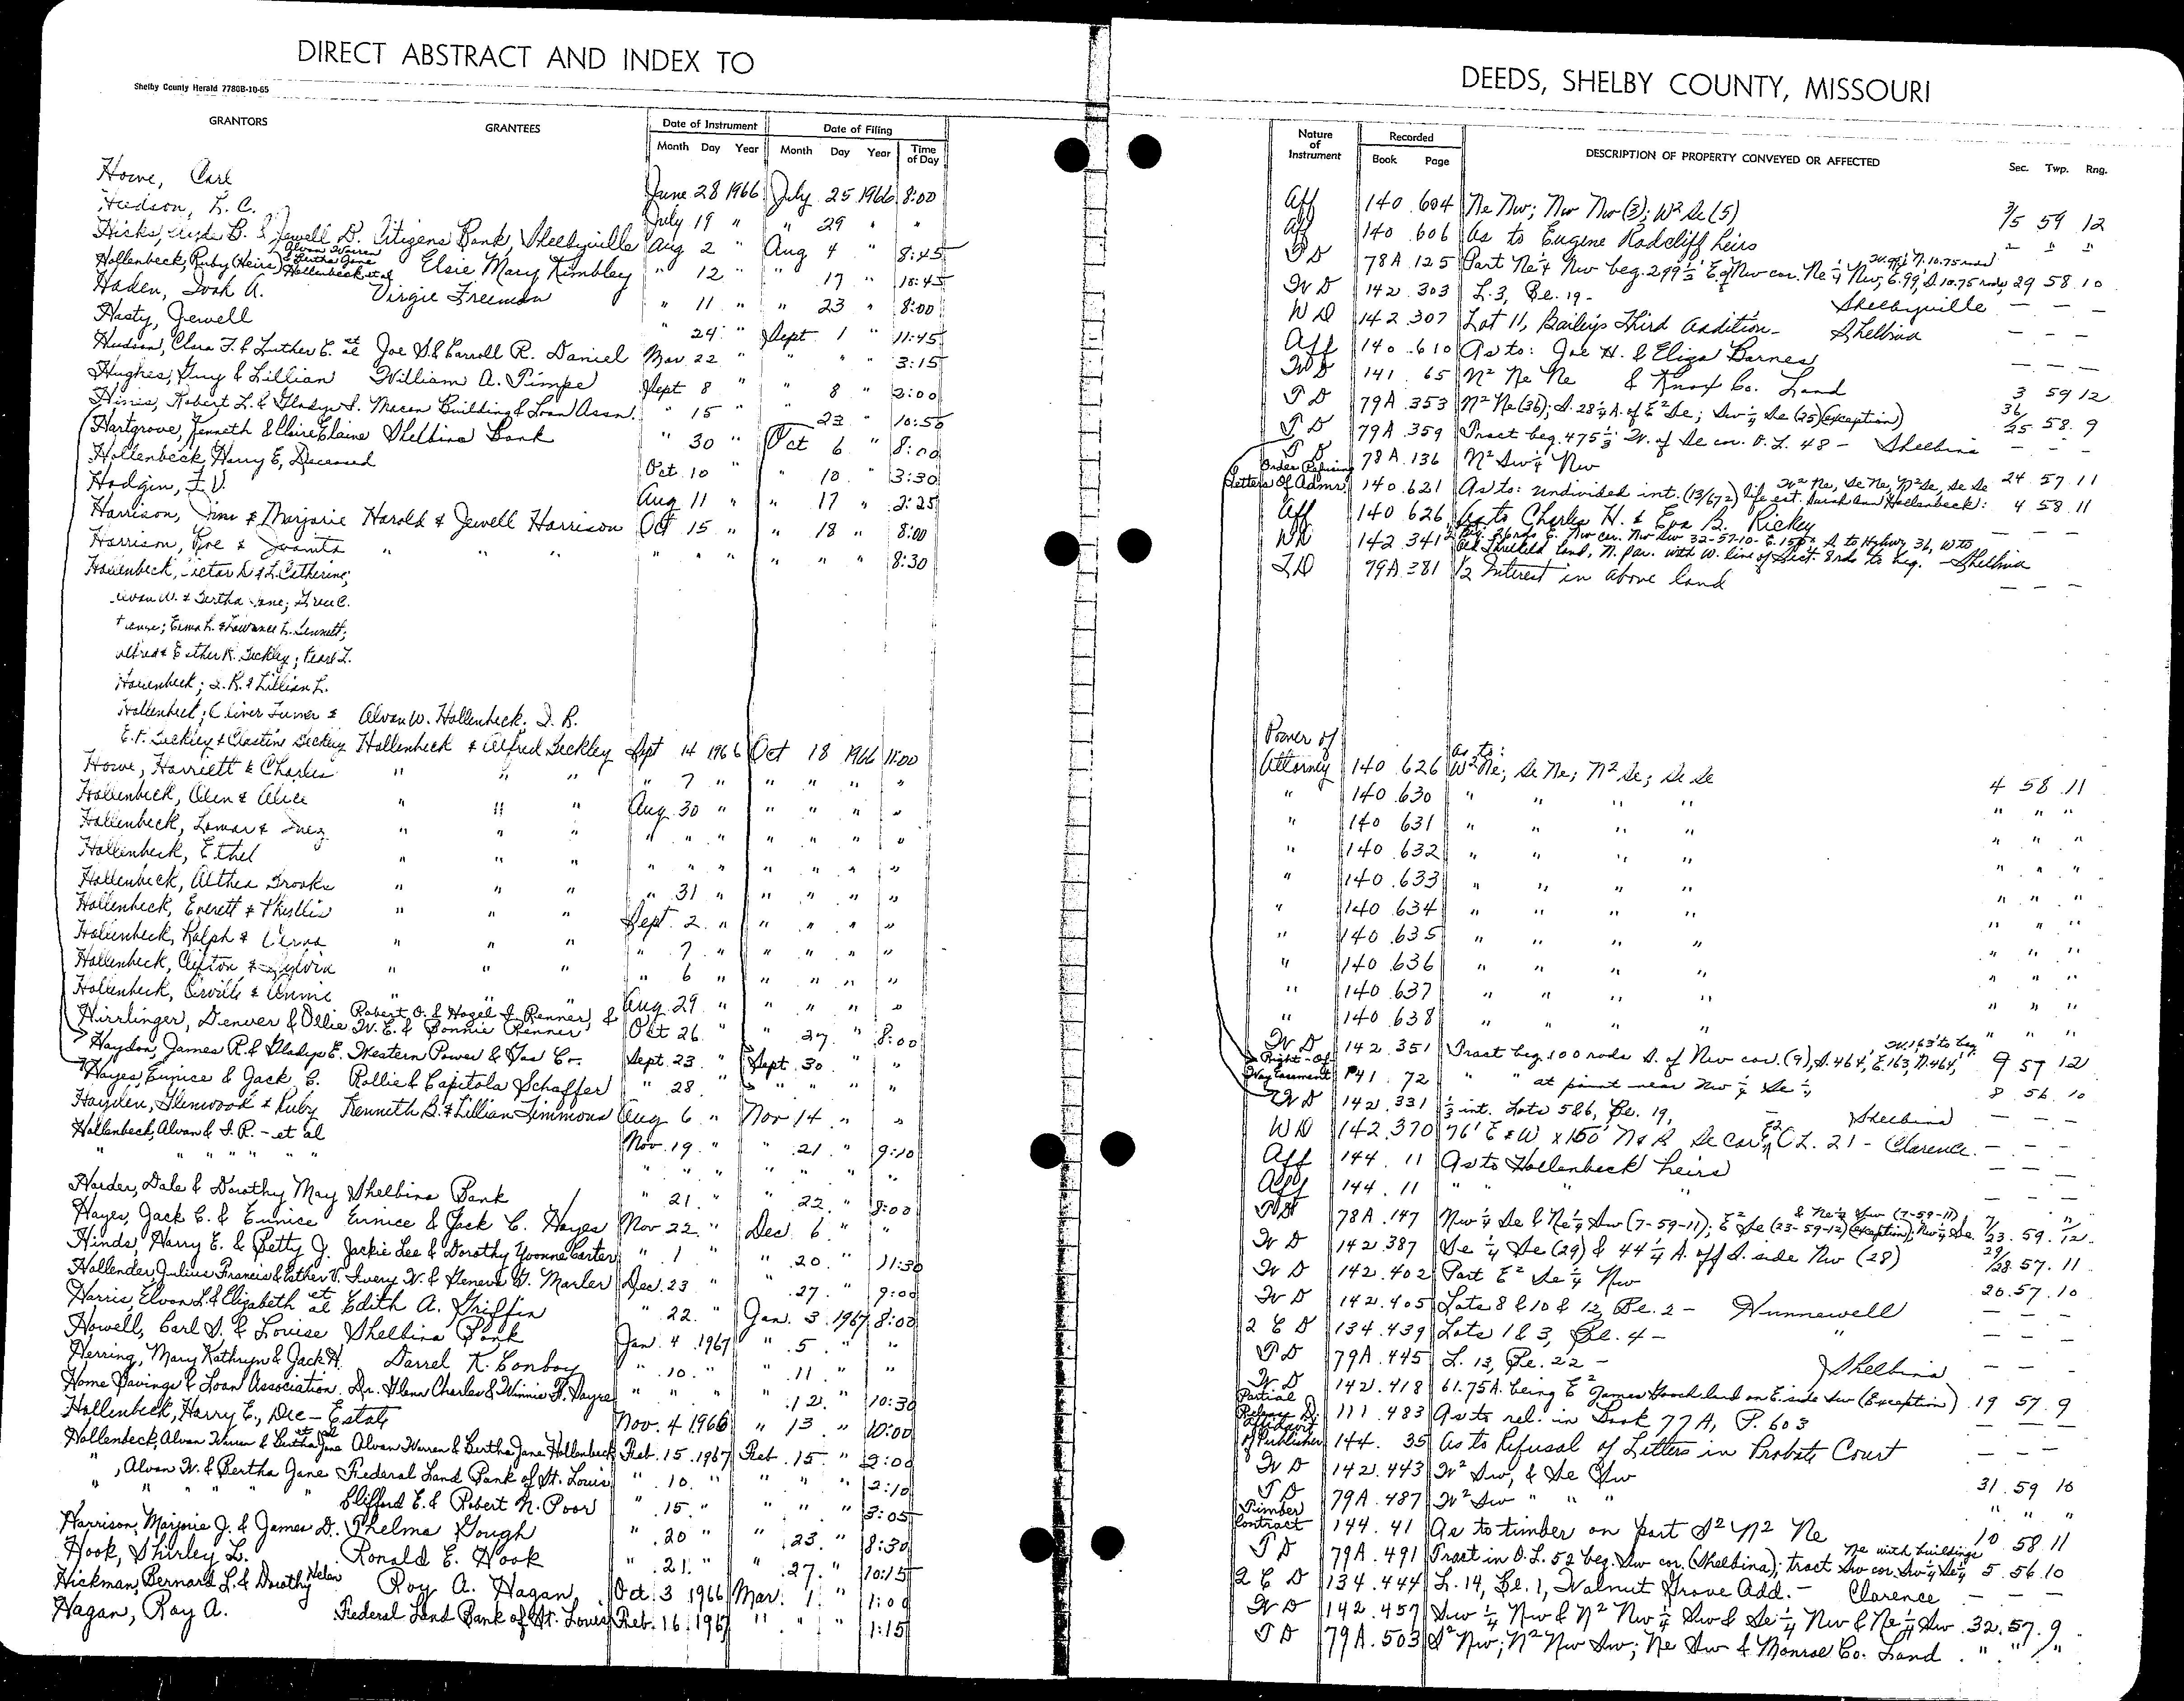 DIRECT ABSTRACT AND INDEX TO
Shelby County Herald 7780B-10-65
GRANTORS GRANTEES Date of Instrument Date of Filing
Month Day Year Month Day Year Time of Day
Howe, Carl June 28 1966 July 25 1966 8:00
Hudson, L. C. July 19 " " 29 " "
Hicks, B. & Jewell D. Citizens Bank, Shelbyville Aug 2 " Aug 4 " 8:45
Hollenbeck, Ruby (Heirs) Alvan Warren & Bertha Jane Hollenbeck et al Elsie Mary Kimbley " 12 " " 17 " 10:45
Haden, A. Virgie Freeman " 11 " " 23 " 8:00
Hasty, Jewell " 24 " Sept 1 " 11:45
Hudson, Clara F. & Luther E. et al Joe S. & Carroll R. Daniel Mar 22 " " " " 3:15
Hughes, Guy & Lillian William A. Pimpe Sept 8 " " 8 " 2:00
Robert L. & Gladys I. Macon Building & Loan Assn. " 15 " " 23 " 10:50
Hartgrove, Kenneth & Claire Elaine Shelbina Bank " 30 " Oct 6 " 8:00
Hollenbeck, Harry E, Deceased Oct 10 " " 10 " 3:30
Hodgin, I. V. Aug 11 " " 17 " 2:25
Harrison, Jim & Marjorie Harold & Jewell Harrison Oct 15 " " 18 " 8:00
Harrison, Roe & Juanita " " " " " " " " " 8:30
Hollenbeck, Victor D. & L. Catherine;
Alvan W. & Bertha Jane;
Erma L. & Lawrence L. Bennett;
Alfred & Esther K. Beckley; Pearl L.
Hollenbeck; I. R. & Lillian L.
Hollenbeck; Oliver Turner & Alvan W. Hollenbeck, I. R.
E. F. Beckley & Clastine Beckley Hollenbeck & Alfred Beckley Sept 14 1966 Oct 18 1966 11:00
Howe, Harriett & Charles " " " " 7 " " " " "
Hollenbeck, Olen & Alice " " " Aug 30 " " " " "
Hollenbeck, Lomar & Inez " " " " " " " " " "
Hollenbeck, Ethel " " " " " " " " " "
Hollenbeck, Althea Brooks " " " " 31 " " " " "
Hollenbeck, Everett & Phyllis " " " Sept. 2 " " " " "
Hollenbeck, Ralph & Verna " " " " 7 " " " " "
Hollenbeck, Clifton & Sylvia " " " " 6 " " " " "
Hollenbeck, Orville & Annie " " " Aug 29 " " " " "
Hirrlinger, Denver & Ollie Robert O. & Hazel I. Renner, & W. E. & Bonnie Renner Oct 26 " " 27 " 8:00
Haydon, James R. & Gladys E. Western Power & Gas Co. Sept 23 " Sept. 30 " "
Hayes, Eunice & Jack C. Rollie & Capitola Schaffer " 28 " " " " "
Hayden, Glenwood & Ruby Kenneth B. & Lillian Timmons Aug 6 " Nov 14 " "
Hollenbeck, Alvan & I. R. - et al Nov. 19 " " 21 " 9:10
" " " " " " " " " " " " "
Harder, Dale & Dorothy May Shelbina Bank " 21 " " 22 " 8:00
Hayes, Jack C. & Eunice Eunice & Jack C. Hayes Nov 22 " Dec. 6 " "
Hinds, Harry E. & Betty J. Jackie Lee & Dorothy Yvonne Carter " 1 " " 20 " 11:30
Hollender, Julius Francis & Esther V. Ivery W. & Geneva G. Marler Dec. 23 " " 27 " 9:00
Harris, Elvon L. & Elizabeth et al Edith A. Griffin " 22 " Jan. 3 1967 8:00
Howell, Carl S. & Louise Shelbina Bank Jan. 4 1967 " 5 " "
Herring, Mary Kathryn & Jack H. Darrel K. Conboy " 10 " " 11 " "
Home Savings & Loan Association Dr. Glenn Charles & Winnie F. Hayre " " " " 12 " 10:30
Hollenbeck, Harry E., Dec - Estate Nov. 4 1966 " 13 " 10:00
Hollenbeck, Alvan Warren & Bertha Jane et al Alvan Warren & Bertha Jane Hollenbeck Feb. 15 1967 Feb. 15 " 2:00
" , Alvan W. & Bertha Jane Federal Land Bank of St. Louis " 10 " " " " 2:10
" " " " " Clifford E. & Robert N. Poor " 15 " " " " 3:05
Harrison, Marjorie J. & James D. Thelma Gough " 20 " " 23 " 8:30
Hook, Shirley L. Ronald E. Hook " 21 " " 27 " 10:15
Hickman, Bernard L. & Dorothy Helen Roy A. Hagan Oct 3 1966 Mar. 1 " 1:00
Hagan, Roy A. Federal Land Bank of St. Louis Feb. 16 1967 " " " 1:15
DEEDS, SHELBY COUNTY, MISSOURI
Nature of Instrument Recorded Book Page DESCRIPTION OF PROPERTY CONVEYED OR AFFECTED Sec. Twp. Rng.
Aff 140 604 Ne Nw; Nw Nw (3); W² Se (5) 3/5 59 12
Aff 140 606 As to Eugene Radcliff heirs " " "
T D 78A 125 Part Ne ¼ Nw beg. 299 ⅓' E. of Nw cor. Ne ¼ Nw, E. 99', S. 10.75 rods, W. 99', N. 10.75 rods 29 58 10
W D 142 303 L. 3, Be. 19 - Shelbyville — — —
W D 142 307 Lot 11, Bailey's Third Addition - Shelbina — — —
Aff 140 610 As to: Joe H. & Eliza Barnes — — —
W D 141 65 N² Ne Ne & Knox Co. Land 3 59 12
T D 79A 353 N² Ne (36); S. 28 ¼ A. of E² Se; Sw ¼ Se (25) (exception) 36/25 58 9
T D 79A 359 Tract beg. 475 ⅓' W. of Se cor. O. L. 48 - Shelbina — — —
T D 78A 136 N² Sw ¼ Nw 24 57 11
Order Refusing Letters Of Admr. 140 621 As to: undivided int. (13/672) life est. Sarah Ann Hollenbeck: W² Ne, Se Ne, N² Se, Se Se 4 58 11
Aff 140 626 As to Charles H. & Eva B. Rickey — — —
WD 142 341 Beg. 26 rds E. Nw cor. Nw Sw 32-57-10 - E. 150', S. to Hghwy 36, W to
Old Threlkeld land, N. par. with W. line of Sect. 8 rds to beg. - Shelbina
T D 79A 381 ½ Interest in above land — — —
Power of Attorney 140 626 As to: W² Ne; Se Ne; N² Se; Se Se 4 58 11
" 140 630 " " " " " " "
" 140 631 " " " " " " "
" 140 632 " " " " " " "
" 140 633 " " " " " " "
" 140 634 " " " " " " "
" 140 635 " " " " " " "
" 140 636 " " " " " " "
" 140 637 " " " " " " "
" 140 638 " " " " " " "
W D 142 351 Tract beg. 100 rods S. of Nw cor. (9), S. 464', E. 163', N. 464', W. 163' to beg 9 57 12
Right-Of Way Easement 141 72 " " at point near Nw ¼ Se ¼ 8 56 10
W D 142 331 ⅓ int. Lots 5 & 6, Be. 19, Shelbina — — —
WD 142 370 76' E & W x 150' N & S, Se cor. E² O L. 21 - Clarence — — —
Aff 144 11 As to Hollenbeck heirs — — —
Aff 144 11 " " " — — —
T D 78A 147 Nw ¼ Se & Ne ¼ Sw (7-59-11); E² Se (23-59-12) (exception); Nw ¼ Se & Ne ¼ Sw (7-59-11) 7/23 59 12
W D 142 387 Se ¼ Se (29) & 44 ¼ A. off S. side Nw (28) 29/28 57 11
W D 142 402 Part E² Se ¼ Nw 20 57 10
W D 142 405 Lots 8 & 10 & 12, Be. 2 - Hunnewell — — —
2 C D 134 439 Lots 1 & 3, Be. 4 - " — — —
T D 79A 445 L. 13, Be. 22 - Shelbina — — —
W D 142 418 61.75 A. being E² James Gooch land on E. side Sw (Exception) 19 57 9
Partial Release 111 483 As to rel. in Book 77A, P. 603 — — —
of Publisher 144 35 As to Refusal of Letters in Probate Court — — —
W D 142 443 W² Sw, & Se Sw 31 59 10
T D 79A 487 W² Sw " " " " " "
Timber Contract 144 41 As to timber on part S² N² Ne 10 58 11
T D 79A 491 Tract in O. L. 52 beg. Sw cor. (Shelbina); tract Sw cor. Sw ¼ Se ¼ Ne with buildings 5 56 10
2 C D 134 444 L. 14, Be. 1, Walnut Grove Add. - Clarence — — —
W D 142 457 Sw ¼ Nw & N² Nw ¼ Sw & Se ¼ Nw & Ne ¼ Sw 32 57 9
T D 79A 503 S² Nw; N² Nw Sw; Ne Sw & Monroe Co. Land " " "